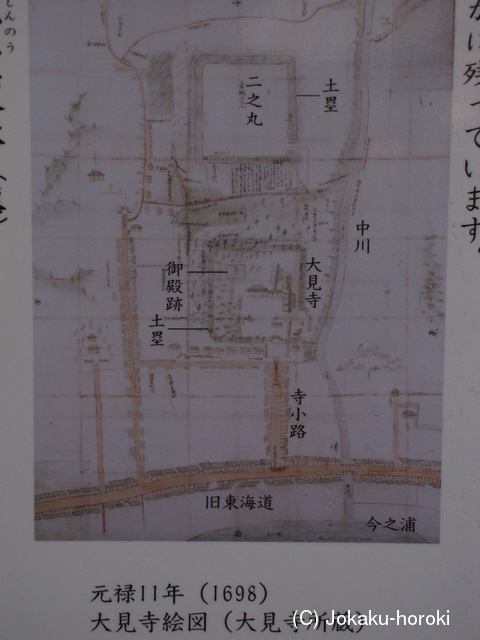 しんのう
かに残っています。
二之丸
土塁
中川
大見寺
御殿跡
土塁
寺小路
旧東海道
今之浦
元禄11年（1698）
大見寺絵図（大見寺所蔵）
(C) Jokaku-horoki